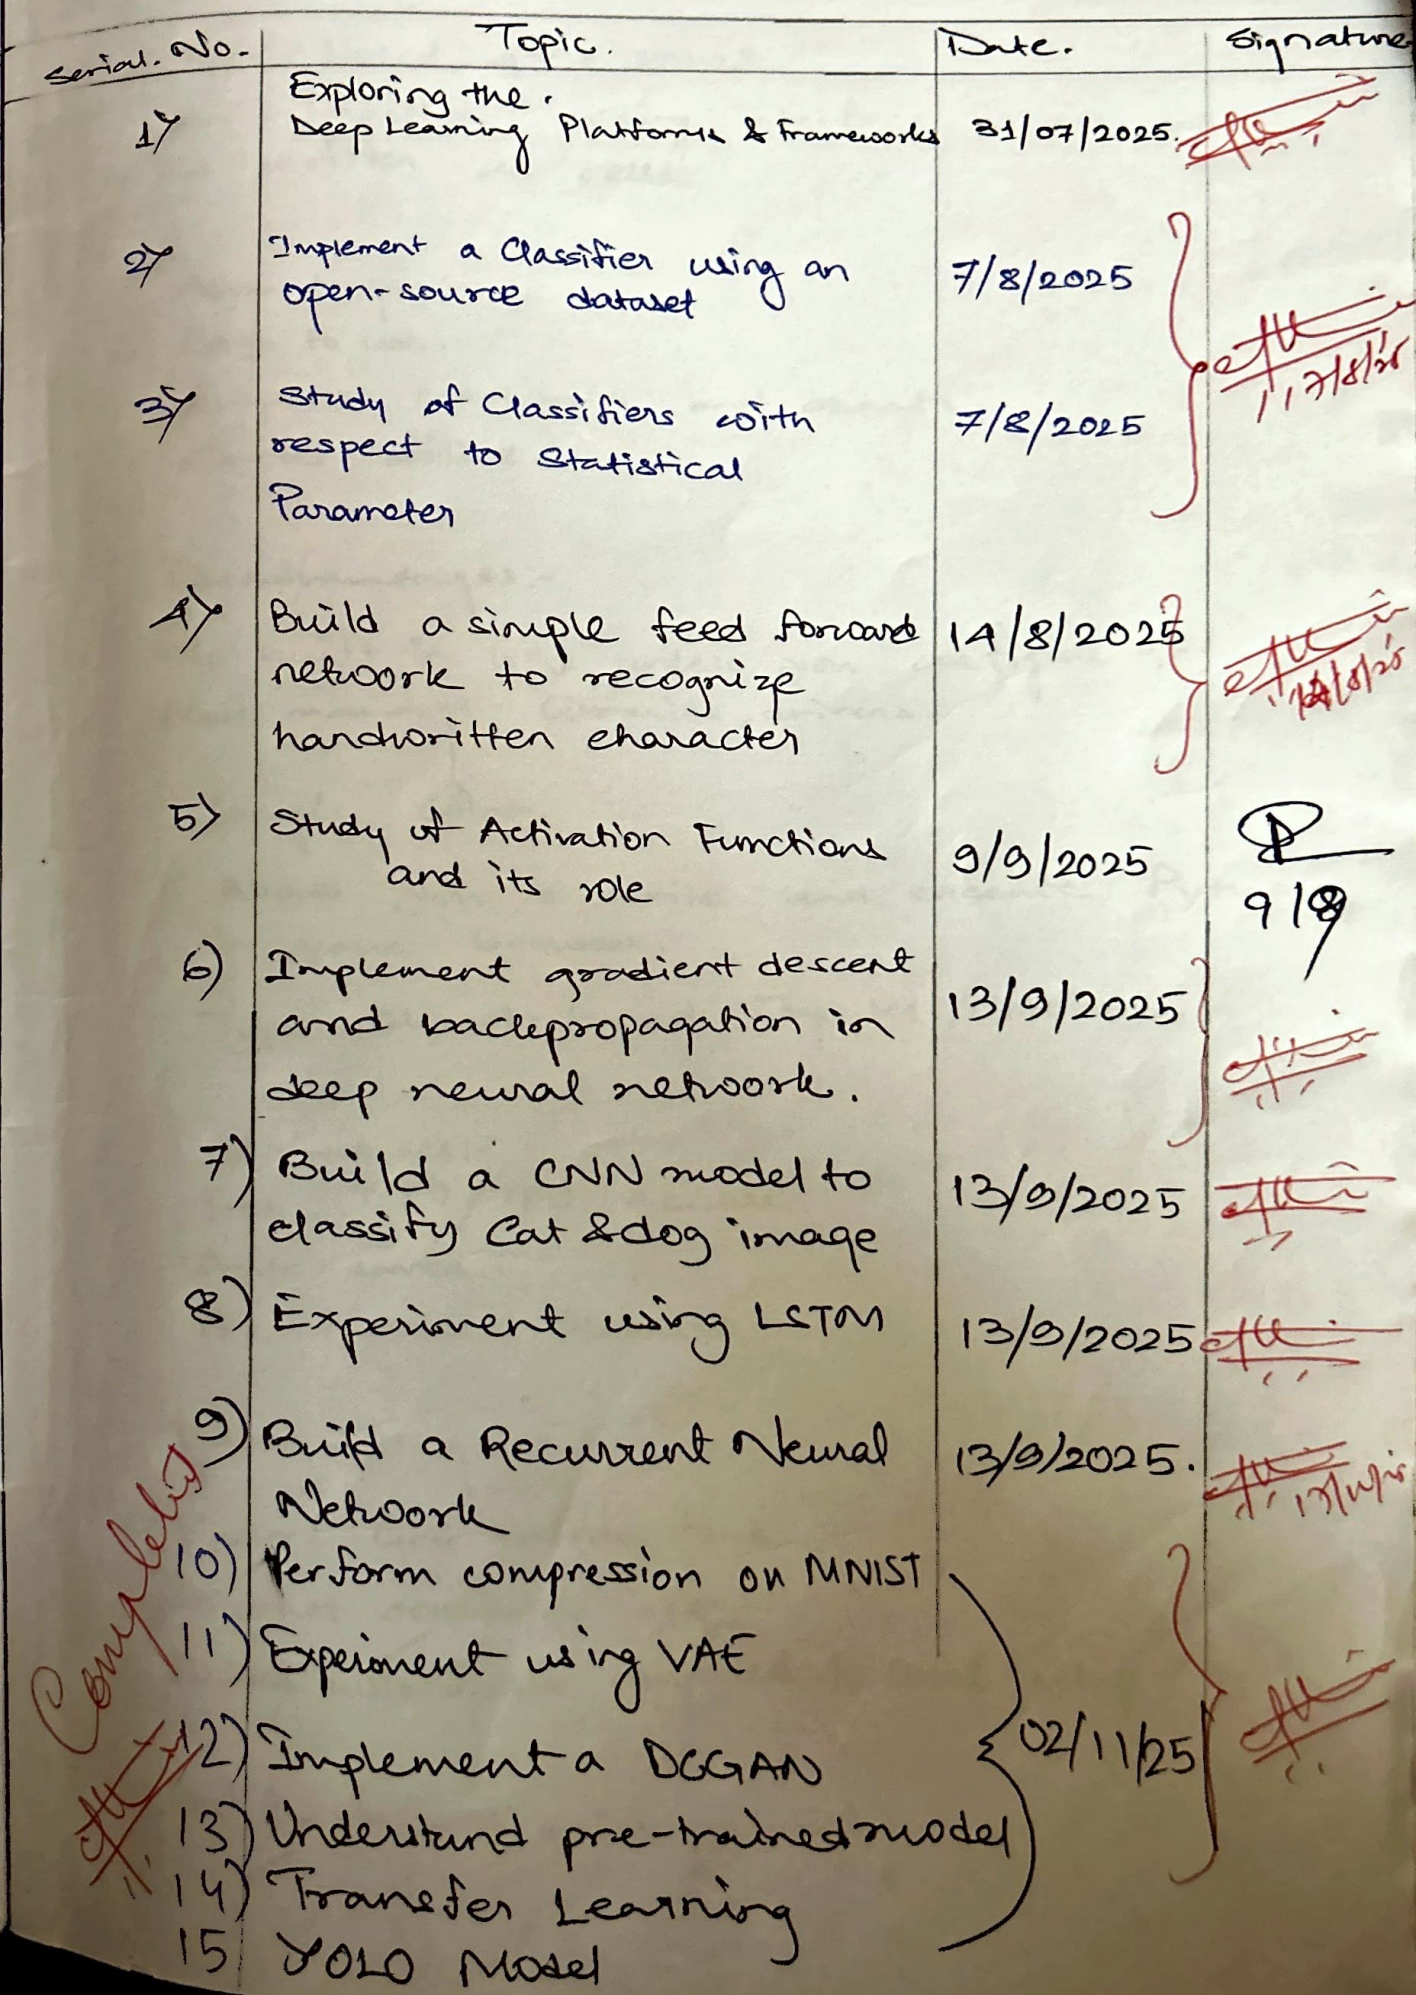 Serial. No. Topic. Date. Signature
Exploring the.
1) Deep Learning Platforms & Frameworks 31/07/2025.
2) Implement a Classifier using an 7/8/2025
open-source dataset
7/8/25
3) Study of Classifiers with 7/8/2025
respect to Statistical
Parameter
4) Build a simple feed forward 14/8/2025
network to recognize 14/8/25
handwritten character
5) Study of Activation Functions 9/9/2025
and its role
6) Implement gradient descent 13/9/2025
and backpropagation in
deep neural network.
7) Build a CNN model to 13/9/2025
classify Cat & dog image
8) Experiment using LSTM 13/9/2025
9) Build a Recurrent Neural 13/9/2025.
Network
10) Perform compression on MNIST
11) Experiment using VAE
12) Implement a DCGAN 02/11/25
13) Understand pre-trained model
14) Transfer Learning
15 YOLO Model
Completed